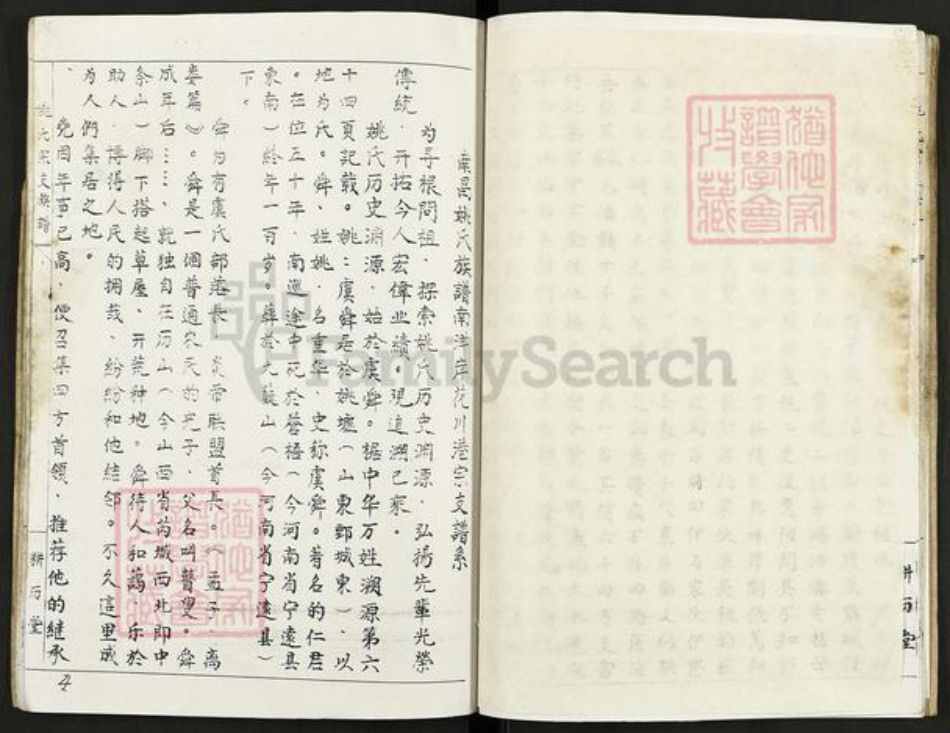 南昌姚氏族譜南洋岸花川港宗支譜系
为寻根問祖、探索姚氏历史渊源、弘揚先輩光榮
傳統、开拓今人宏偉业绩。現追溯已來。
姚氏历史渊源、始於虞舜。据中华万姓溯源第六
十四頁記載。姚：虞舜居於姚墟（山東鄄城東）、以
地为氏。舜、姓姚、名重华、史称虞舜。著名的仁君
。在位五十年、南巡途中死於蒼梧（今河南省宁遠县
東南）終年一百岁。葬於九嶷山（今河南省宁遠县）
下。
舜为有虞氏部落長、炎帝联盟首長。《孟子、离
娄篇》。舜是一個普通农民的兒子、父名叫瞽叟。舜
成年后……、就独自在历山（今山西省芮城西北即中
条山）脚下搭起草屋、开荒种地。舜待人和謁、乐於
助人、博得人民的拥哉、紛紛和他結邻。不久、這里成
为人們集居之地。
堯因年事已高、便召集四方首领、推荐他的继承
姚氏宗支族譜
耕历堂
4
FamilySearch
猶他家
譜學會
收藏
猶他家
譜學會
收藏
耕历堂